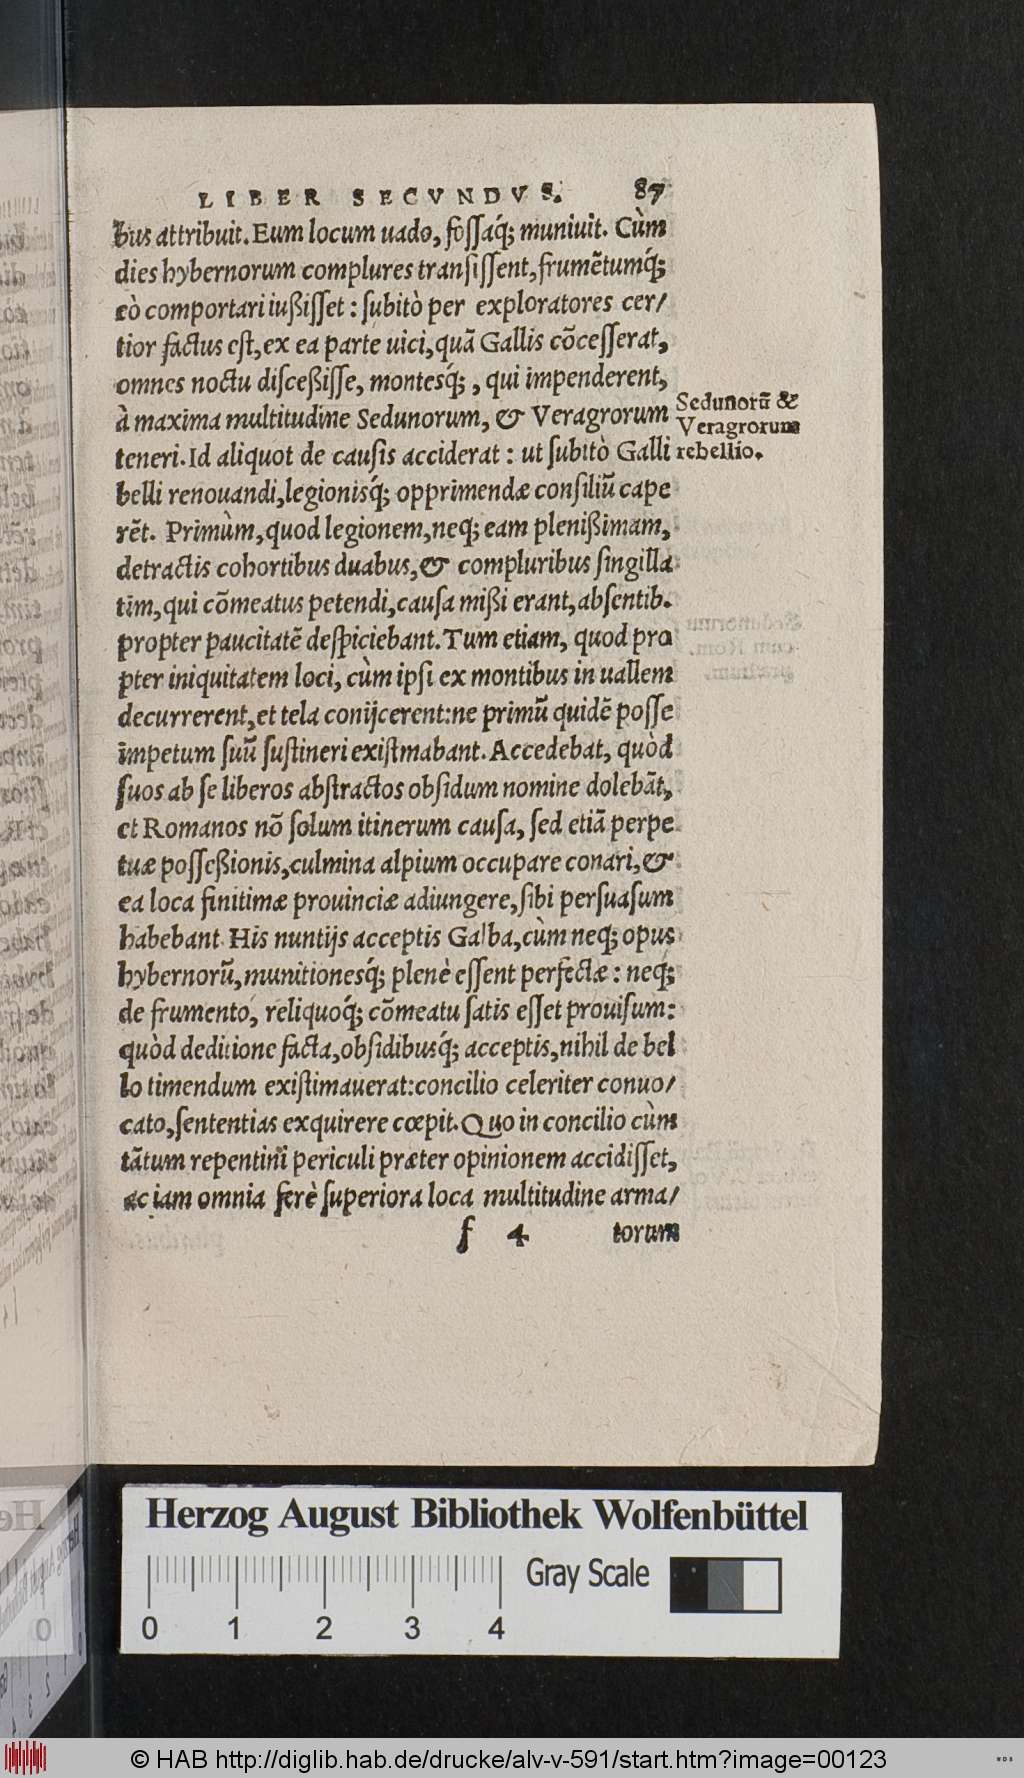 LIBER SECVNDVS. 87
bus attribuit. Eum locum uado, foſſaq́; muniuit. Cùm
dies hybernorum complures tranſiſſent, frumẽtumq́;
eò comportari iußiſſet: ſubitò per exploratores cer/
tior factus eſt, ex ea parte uici, quã Gallis cõceſſerat,
omnes noctu diſceßiſſe, montesq́;, qui impenderent,
à maxima multitudine Sedunorum, & Veragrorum
Sedunorũ &
Veragrorum
rebellio.
teneri. Id aliquot de cauſis acciderat: ut ſubitò Galli
belli renouandi, legionisq́; opprimendæ conſiliũ cape
rẽt. Primùm, quod legionem, neq; eam plenißimam,
detractis cohortibus duabus, & compluribus ſingilla
tim, qui cõmeatus petendi, cauſa mißi erant, abſentib.
propter paucitatẽ deſpiciebant. Tum etiam, quod pro
pter iniquitatem loci, cùm ipſi ex montibus in uallem
decurrerent, et tela conijcerent: ne primũ quidẽ poſſe
impetum ſuũ ſuſtineri exiſtmabant. Accedebat, quòd
ſuos ab ſe liberos abſtractos obſidum nomine dolebãt,
et Romanos nõ ſolum itinerum cauſa, ſed etiã perpe
tuæ poſſeßionis, culmina alpium occupare conari, &
ea loca finitimæ prouinciæ adiungere, ſibi perſuaſum
habebant His nuntijs acceptis Galba, cùm neq; opus
hybernorũ, munitionesq́; plenè eſſent perfectæ: neq;
de frumento, reliquoq́; cõmeatu ſatis eſſet prouiſum:
quòd deditione facta, obſidibusq́; acceptis, nihil de bel
lo timendum exiſtimauerat: concilio celeriter conuo/
cato, ſententias exquirere cœpit. Quo in concilio cùm
tãtum repentini periculi præter opinionem accidiſſet,
ac iam omnia ferè ſuperiora loca multitudine arma/
f 4 torum
Herzog August Bibliothek Wolfenbüttel
Gray Scale
0 1 2 3 4
© HAB http://diglib.hab.de/drucke/alv-v-591/start.htm?image=00123